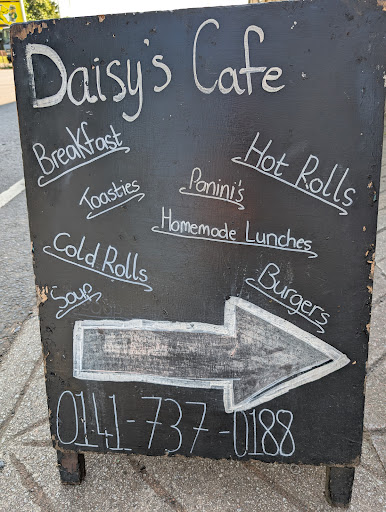 Daisy's Cafe
Breakfast
Hot Rolls
Toasties
Panini's
Homemade Lunches
Cold Rolls
Soup
Burgers
0141-737-0188